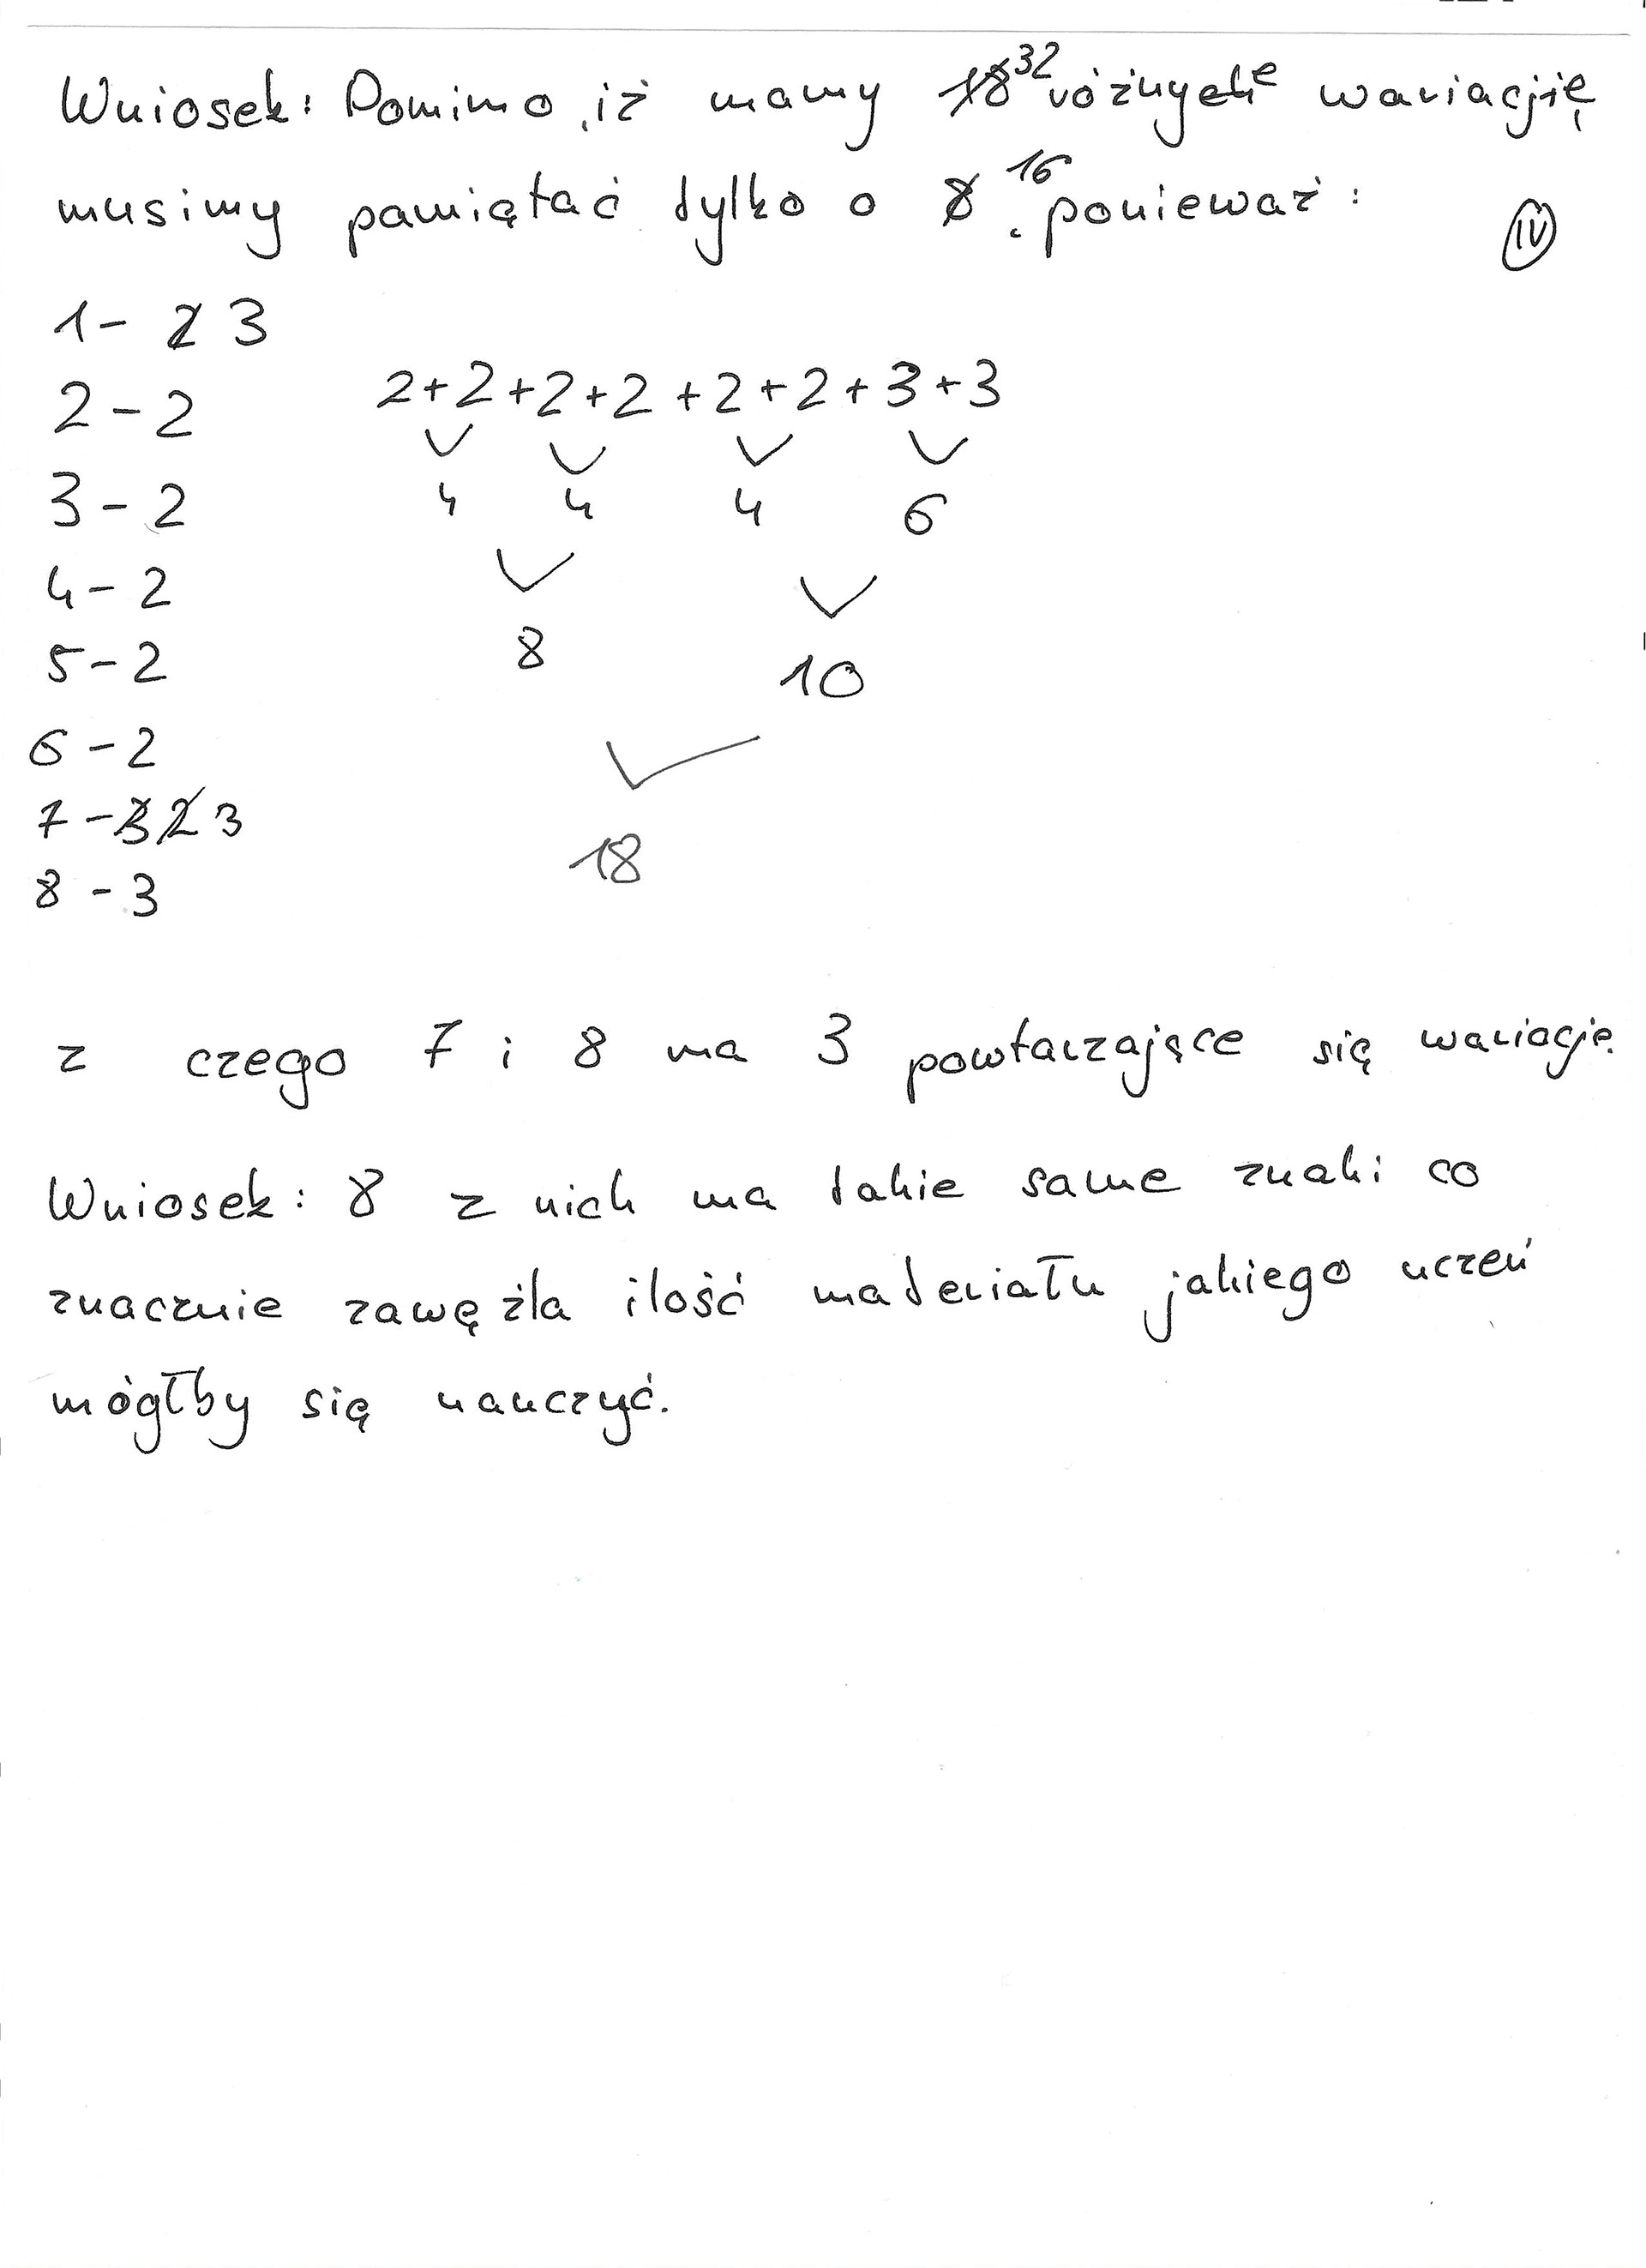 Wniosek: Pomimo, iż mamy 18 32 różnyche wariacjię
musimy pamiętać tylko o 8 16 ponieważ:
IV
1 - 2 3
2 - 2
3 - 2
4 - 2
5 - 2
6 - 2
7 - 3 2 3
8 - 3
2+2+2+2+2+2+3+3
4 4 4 6
8 10
18
z czego 7 i 8 ma 3 powtarzające się wariacje.
Wniosek: 8 z nich ma takie same znaki co
znacznie zawęźla ilość materiału jakiego uczeń
mógłby się nauczyć.